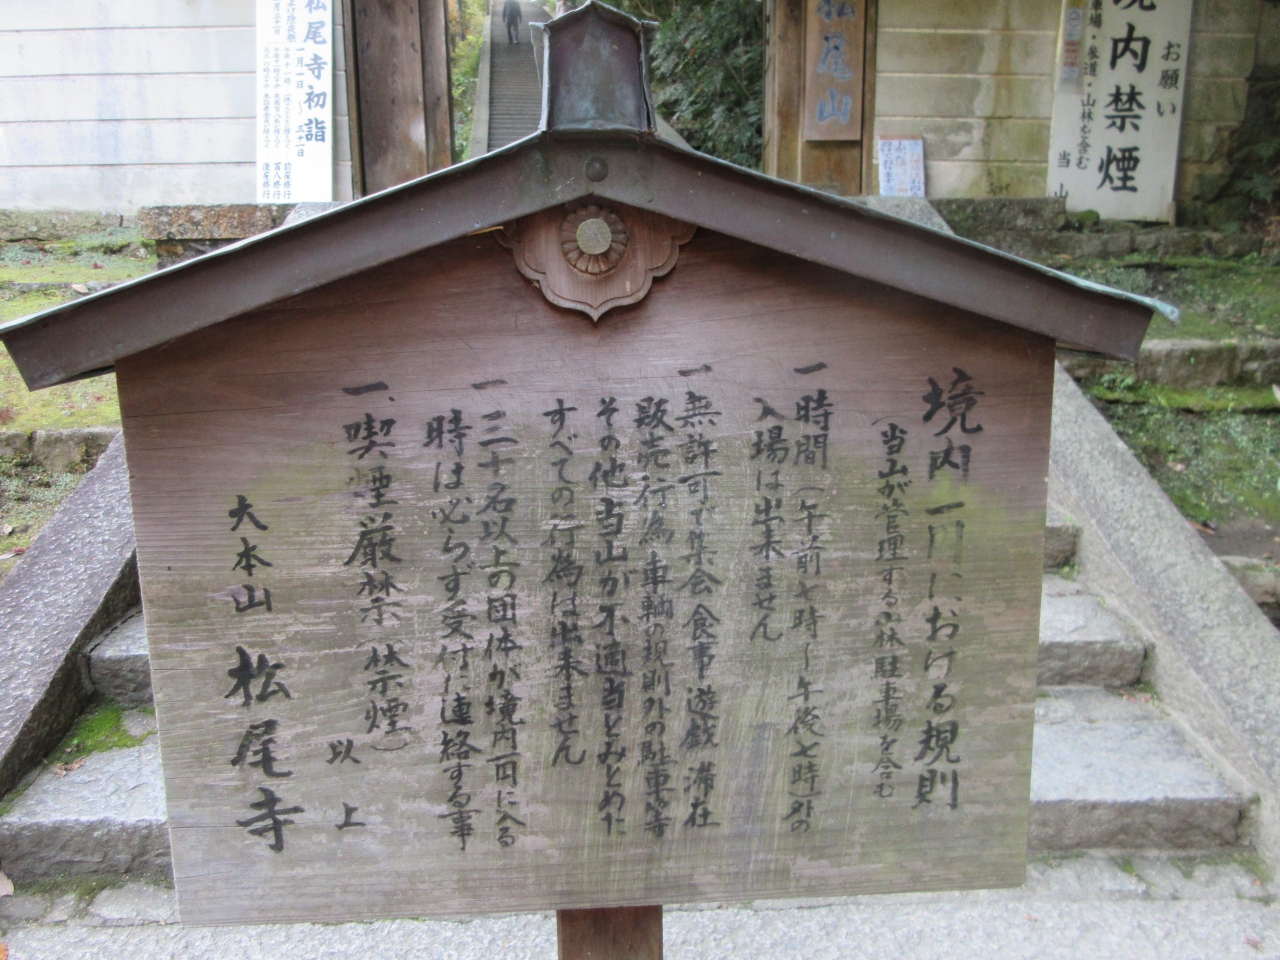 境内一円における規則
（当山が管理する山林駐車場を含む
一 時間（午前七時～午後七時）外の
入場は出来ません
一 無許可で集会 食事 遊戯 滞在
販売行為 車輌の規則外の駐車等
その他当山が不適当とみとめた
すべての行為は出来ません
一 三十名以上の団体が境内一円に入る
時は必らず受付に連絡する事
一、喫煙厳禁（禁煙）
以上
大本山 松尾寺
お願い
境内禁煙
駐車場・参道・山林を含む
当山
松尾山
松尾寺初詣
一月一日～三十一日